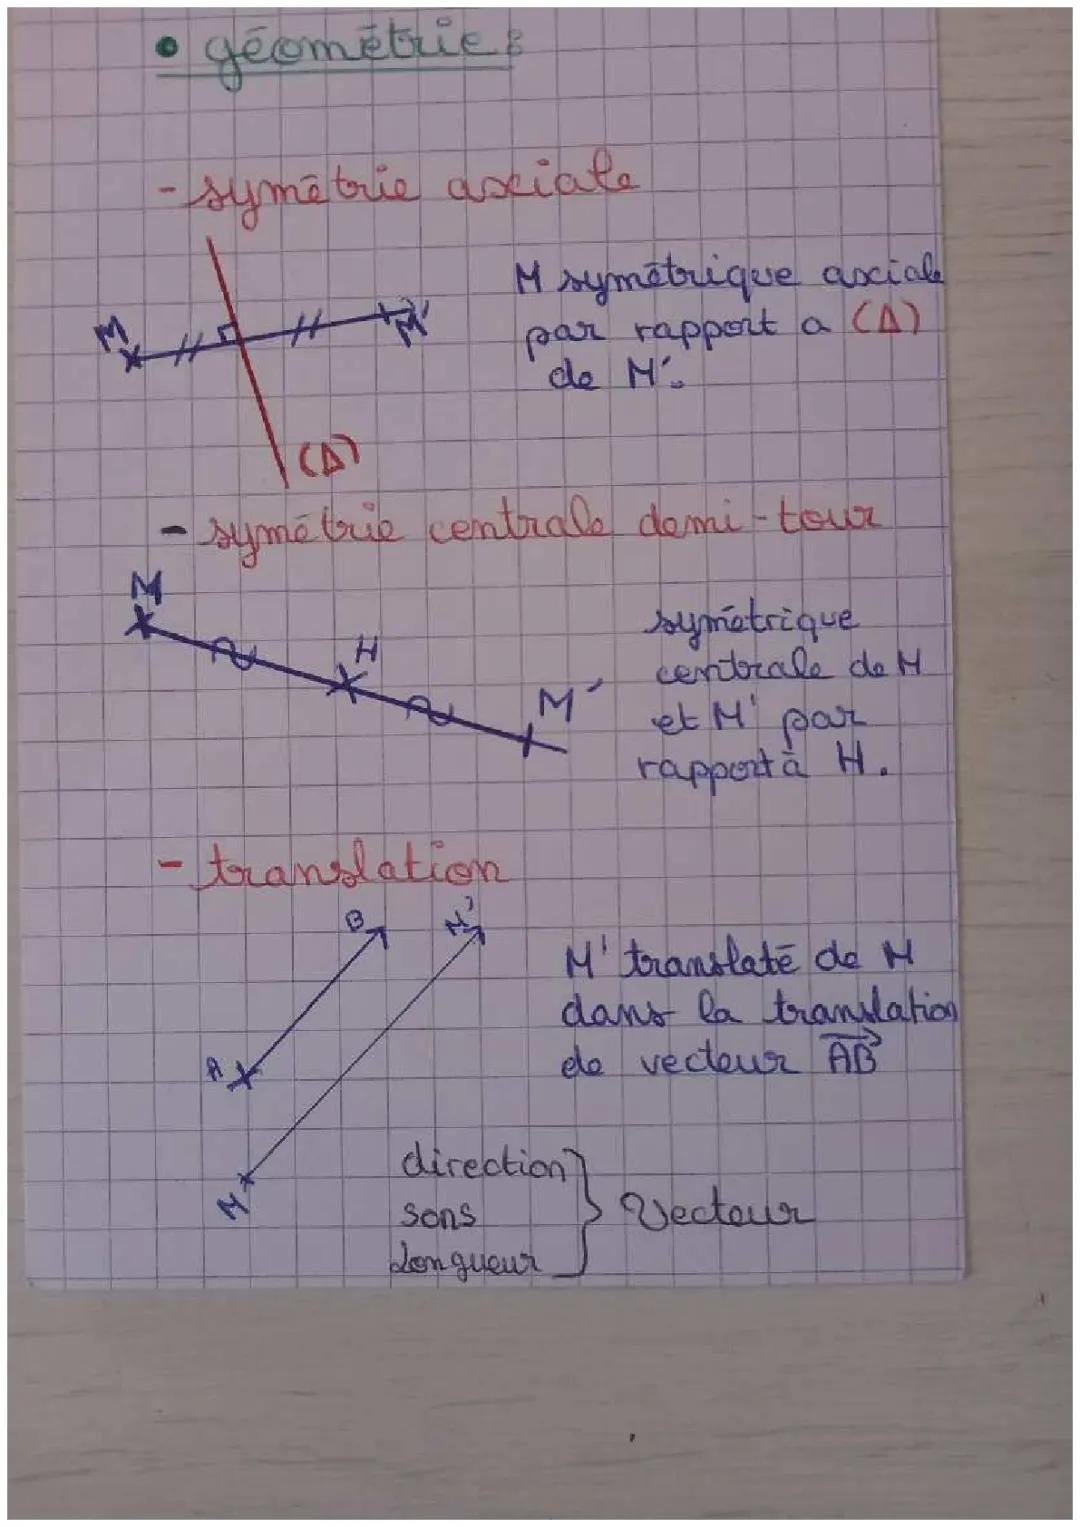 • géométrie :
- symétrie axiale
M symétrique axiale
par rapport a (Δ)
de M'.
M
M'
(Δ)
- symétrie centrale demi-tour
M
H
M'
symétrique
centrale de M
et M' par
rapport à H.
- translation
B
M'
M' translaté de M
dans la translation
de vecteur AB
A
M
direction
sens
longueur
Vecteur